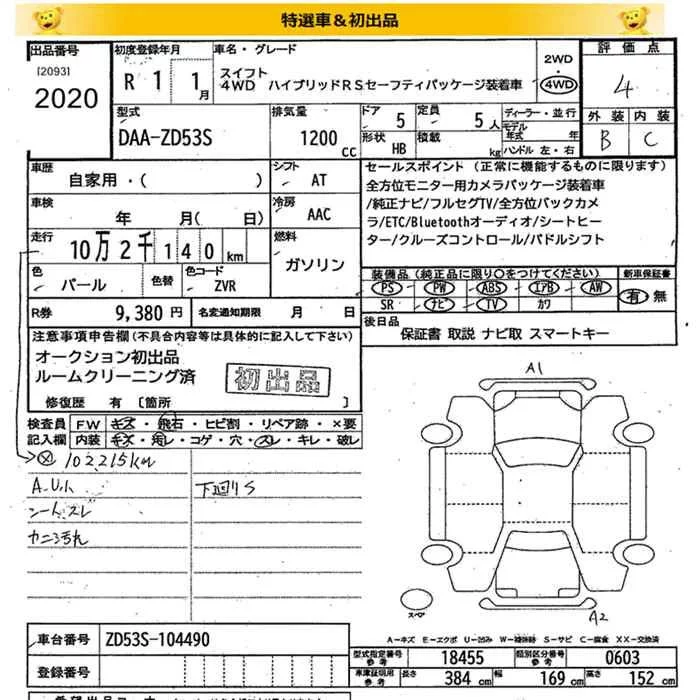 特選車&初出品
出品番号
[2093]
2020
初度登録年月
R 1 1月
車名・グレード
スイフト
4WD ハイブリッドRSセーフティパッケージ装着車
2WD
・
4WD
評価点
4
外装 内装
B C
型式
DAA-ZD53S
排気量
1200 CC
ドア 5
形状 HB
定員 5人
積載 kg
ディーラー・並行
モデル年式 年
ハンドル 左・右
車歴
自家用・( )
シフト
AT
セールスポイント (正常に機能するものに限ります)
全方位モニター用カメラパッケージ装着車
/純正ナビ/フルセグTV/全方位バックカメ
ラ/ETC/Bluetoothオーディオ/シートヒー
ター/クルーズコントロール/パドルシフト
車検
年 月( 日)
冷房
AAC
走行
10万2千140km
燃料
ガソリン
色
パール
色替
色コード
ZVR
装備品 (純正品に限り○をつけてください)
PS PW ABS エアB AW
SR ナビ TV カワ
新車保証書
有 無
R券 9,380円
名変通知期限 月 日
後日品
保証書 取説 ナビ取 スマートキー
注意事項申告欄 (不具合内容等は具体的に記入して下さい)
オークション初出品
ルームクリーニング済
初出品
修復歴 有 [箇所 ]
検査員記入欄
FW キズ・飛石・ヒビ割・リペア跡・×要
内装 キズ・汚レ・コゲ・穴・スレ・キレ・破レ
102215km
下廻りS
シートスレ
カーニ汚れ
A1
A2
スペア
A-キズ E-エクボ U-凹み W-補修跡 S-サビ C-腐食 XX-交換済
車台番号 ZD53S-104490
登録番号
型式指定番号 参考 18455
類別区分番号 参考 0603
車庫証明用 参考 長さ 384cm 幅 169cm 高さ 152cm